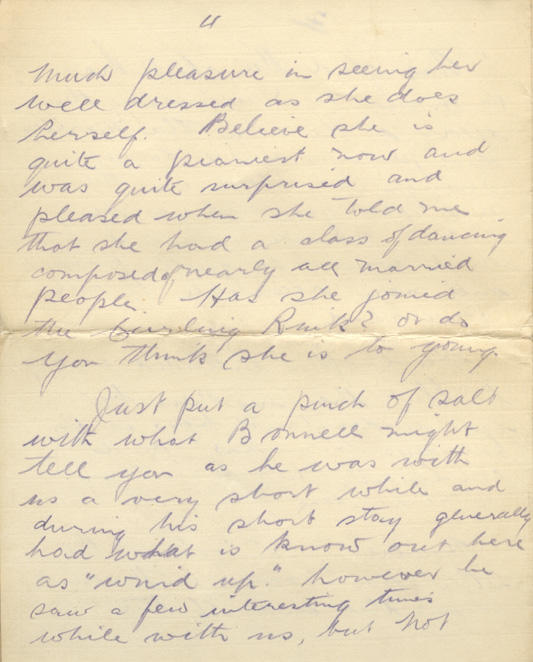 4
much pleasure in seeing her
well dressed as she does
herself. Believe she is
quite a pianiest now and
was quite surprised and
pleased when she told me
that she had a class of dancing
composed of nearly all married
people. Has she joined
the Curling Rink? or do
you think she is to young.
Just put a pinch of salt
with what Bonnell might
tell you as he was with
us a very short while and
during his short stay generally
had what is know out here
as "wind up." however he
saw a few interesting times
while with us, but not